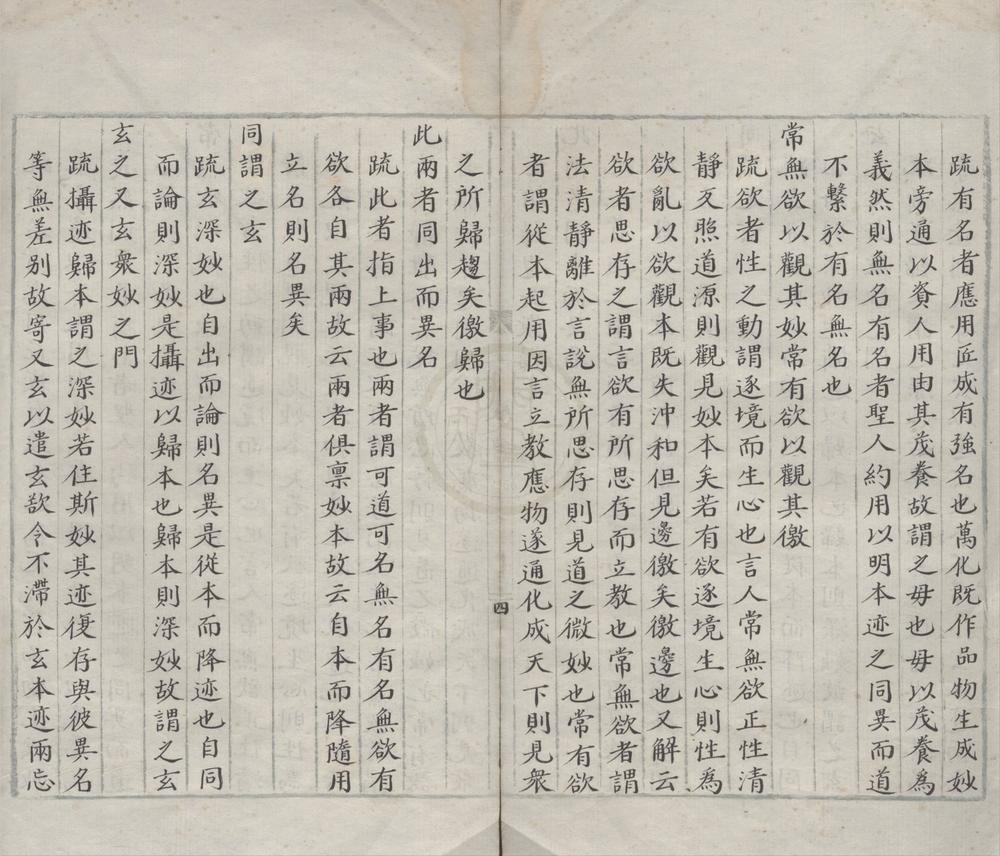 疏有名者應用匠成有強名也萬化既作品物生成妙
本旁通以資人用由其茂養故謂之母也母以茂養為
義然則無名有名者聖人約用以明本迹之同異而道
不繫於有名無名也
常無欲以觀其妙常有欲以觀其徼
疏欲者性之動謂逐境而生心也言人常無欲正性清
靜反照道源則觀見妙本矣若有欲逐境生心則性為
欲亂以欲觀本既失沖和但見邊徼矣徼邊也又解云
欲者思存之謂言欲有所思存而立教也常無欲者謂
法清靜離於言說無所思存則見道之微妙也常有欲
者謂從本起用因言立教應物遂通化成天下則見衆
四
之所歸趨矣徼歸也
此兩者同出而異名
疏此者指上事也兩者謂可道可名無名有名無欲有
欲各自其兩故云兩者俱稟妙本故云自本而降隨用
立名則名異矣
同謂之玄
疏玄深妙也自出而論則名異是從本而降迹也自同
而論則深妙是攝迹以歸本也歸本則深妙故謂之玄
玄之又玄衆妙之門
疏攝迹歸本謂之深妙若住斯妙其迹復存與彼異名
等無差別故寄又玄以遣玄欲令不滯於玄本迹兩忘